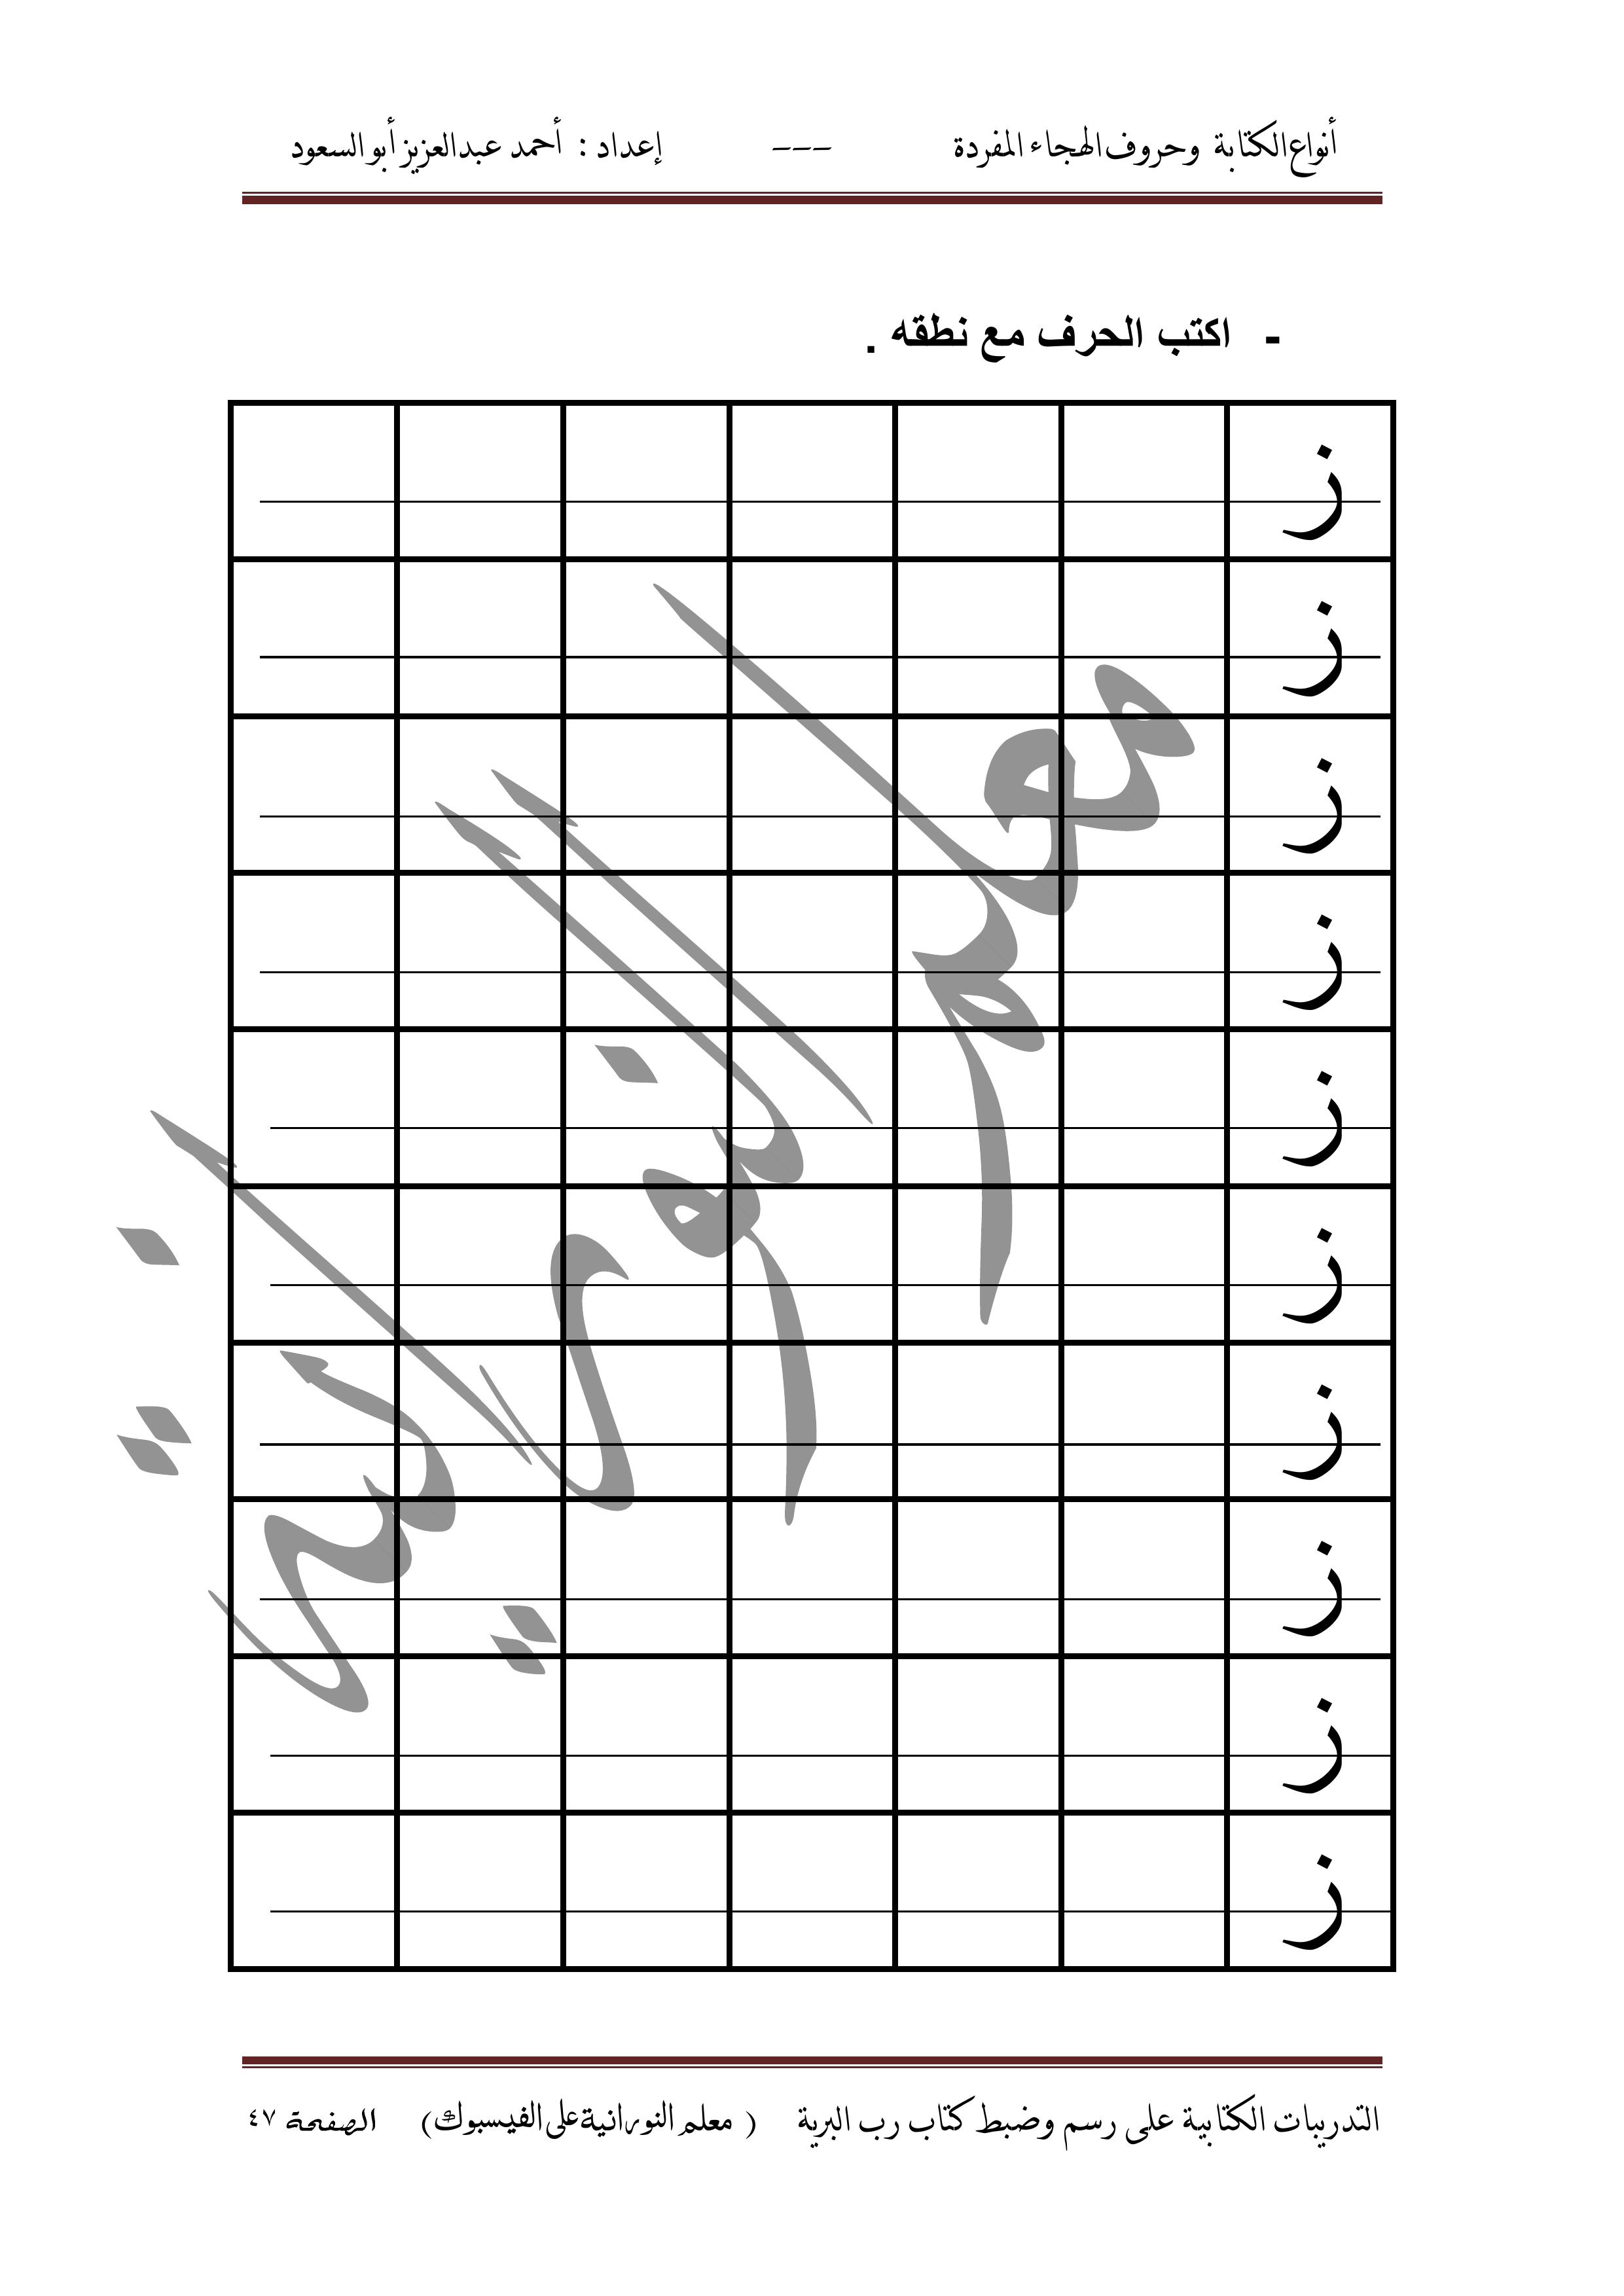 أنواع الكتابة وحروف الهجاء المفردة --- إعداد : أحمد عبدالعزيز أبو السعود
- اكتب الحرف مع نطقه .
ز
ز
ز
ز
ز
ز
ز
ز
ز
ز
معلم النورانية
التدريبات الكتابية على رسم وضبط كتاب رب البرية ( معلم النورانية على الفيسبوك) الصفحة ٤٧